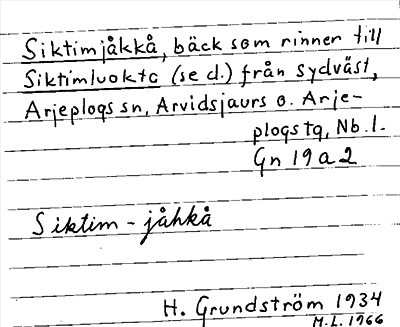 Siktimjåkkå, bäck som rinner till
Siktimluokta (se d.) från sydväst,
Arjeplogs sn, Arvidsjaurs o. Arje-
plogs tg, Nb. l.
Gn 19 a 2
Siktim - jåhkå
H. Grundström 1934
M.L. 1966